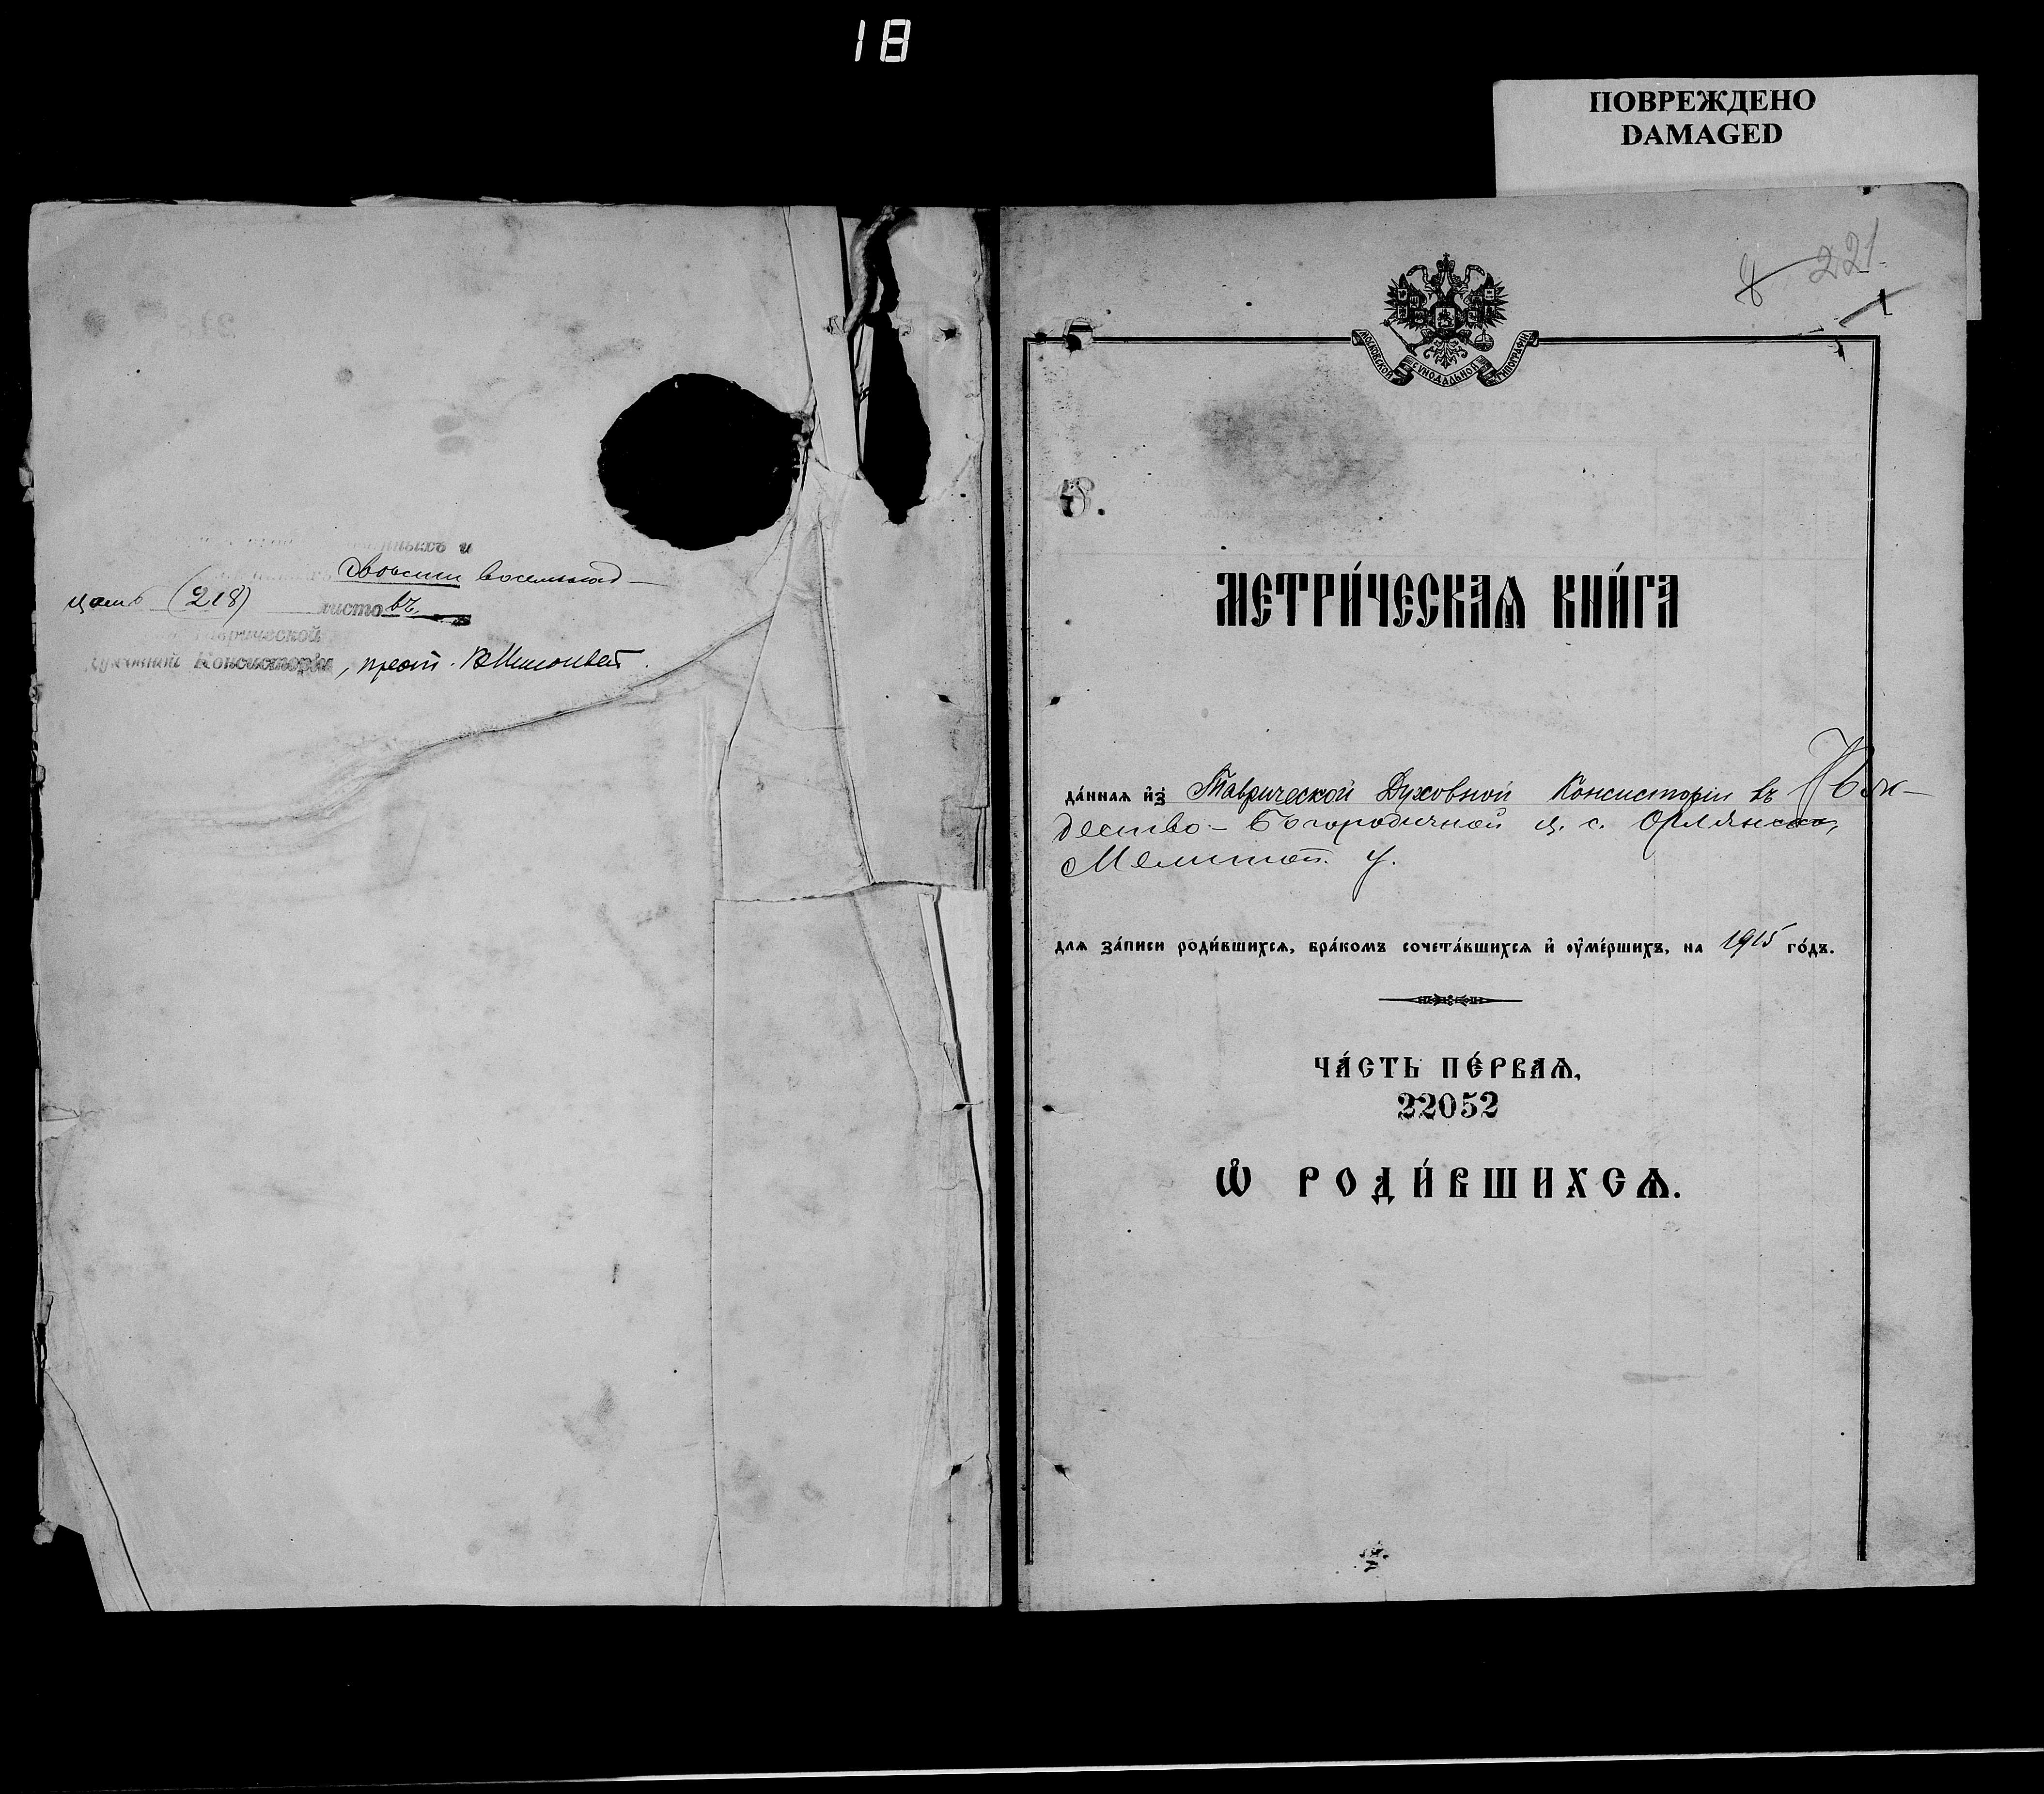 18
ПОВРЕЖДЕНО
DAMAGED
двѣсти восемнад-
цать (218) листовъ.
Таврической
Духовной Консисторіи, прот.
221
1
МОСКОВСКОЙ СѴНОДАЛЬНОЙ ТИПОГРАФІИ
МЕТРИ́ЧЕСКАѦ КНИ́ГА
да́ннаѧ и҆з̾ Таврической Духовной Консисторіи въ Рож-
дество-Богородичной ц. с. Орлянска,
Мелитоп. у.
длѧ за́писи роди́вшихсѧ, бра́комъ сочета́вшихсѧ и҆ оу҆ме́ршихъ, на 1915 го́дъ.
ЧА́СТЬ ПЕ́РВАѦ,
22052
Ѽ РОДИ́ВШИХСѦ.